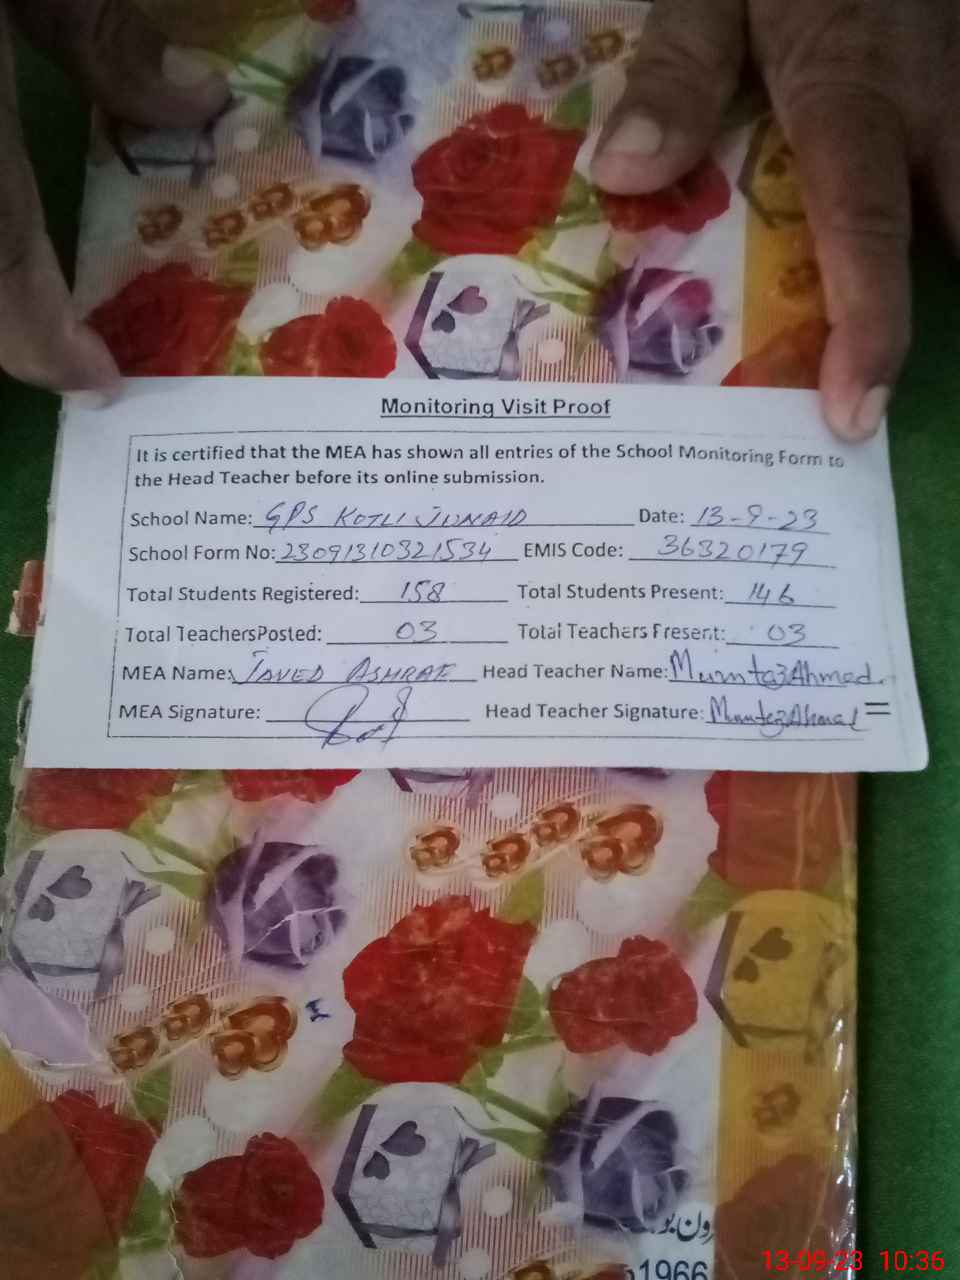 Monitoring Visit Proof
It is certified that the MEA has shown all entries of the School Monitoring Form to
the Head Teacher before its online submission.
School Name: GPS KOTLI JUNAID Date: 13-9-23
School Form No: 23091310321534 EMIS Code: 36320179
Total Students Registered: 158 Total Students Present: 146
Total TeachersPosted: 03 Total Teachers Present: 03
MEA Name: JAVED ASHRAF Head Teacher Name: Mumtaz Ahmed.
MEA Signature: Head Teacher Signature: Mumtaz Ahmad
1966
13-09-23 10:36